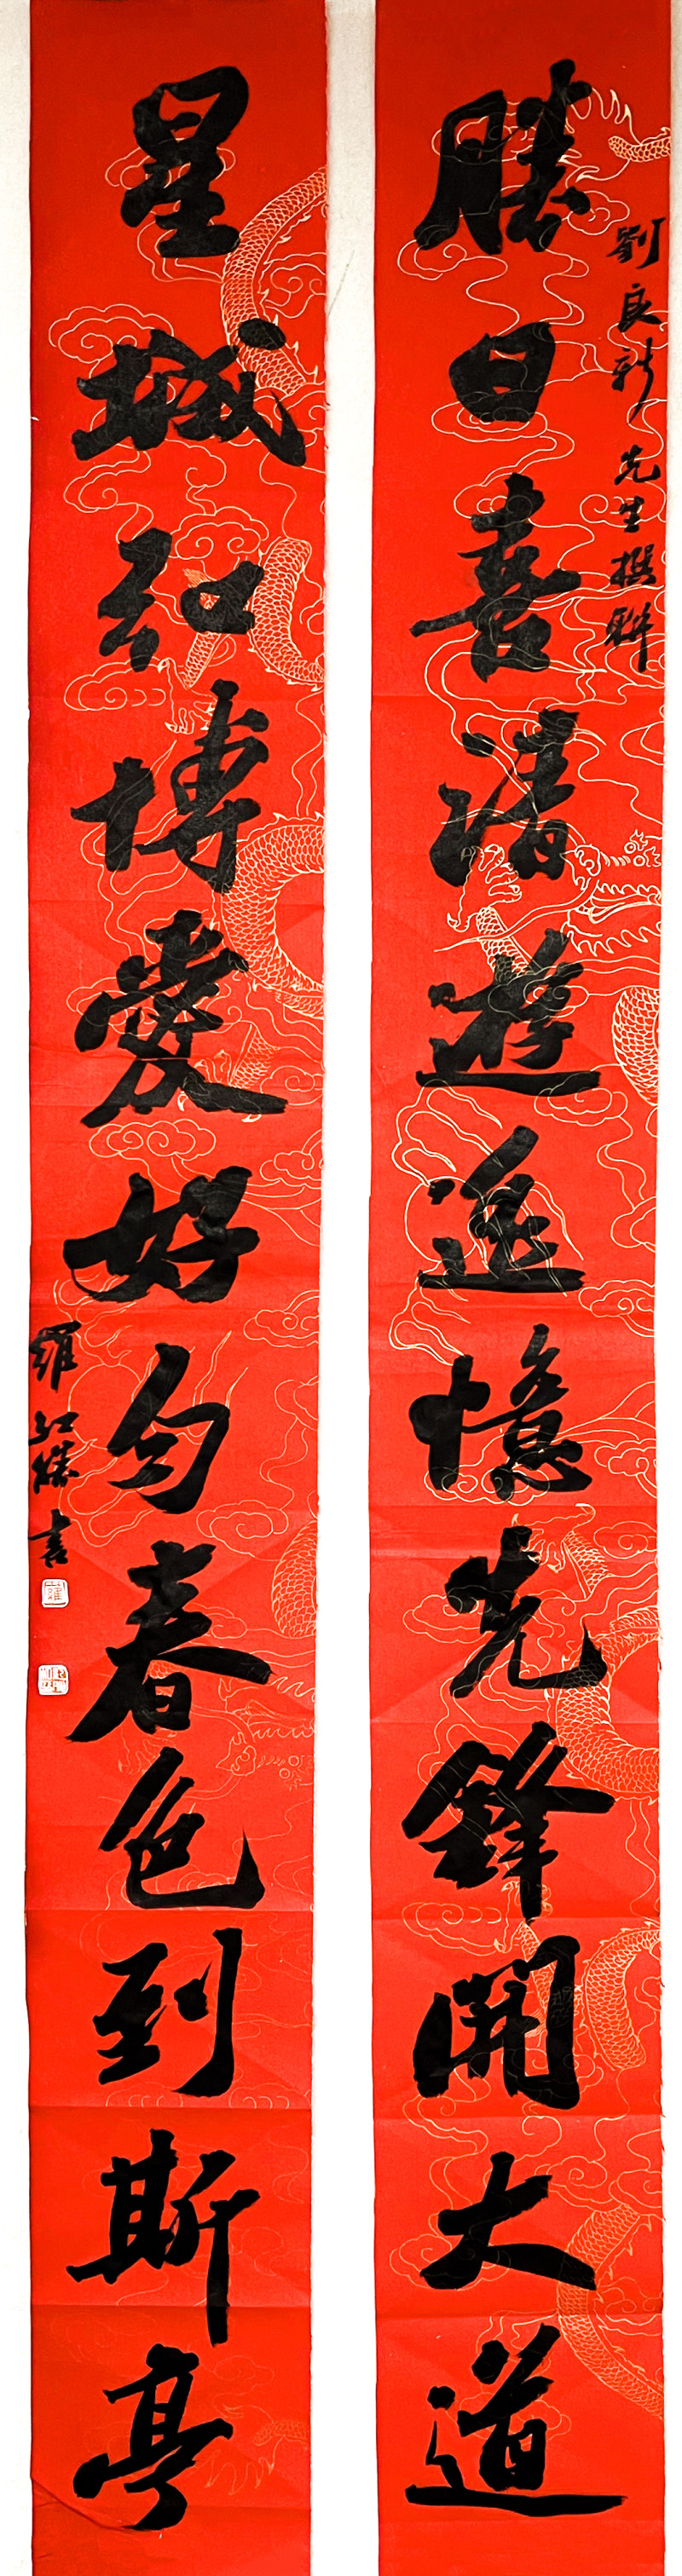 劉良新先生撰聯
勝日喜清遊遥憶先鋒開大道
星城弘博愛好勻春色到斯亭
羅紅勝書